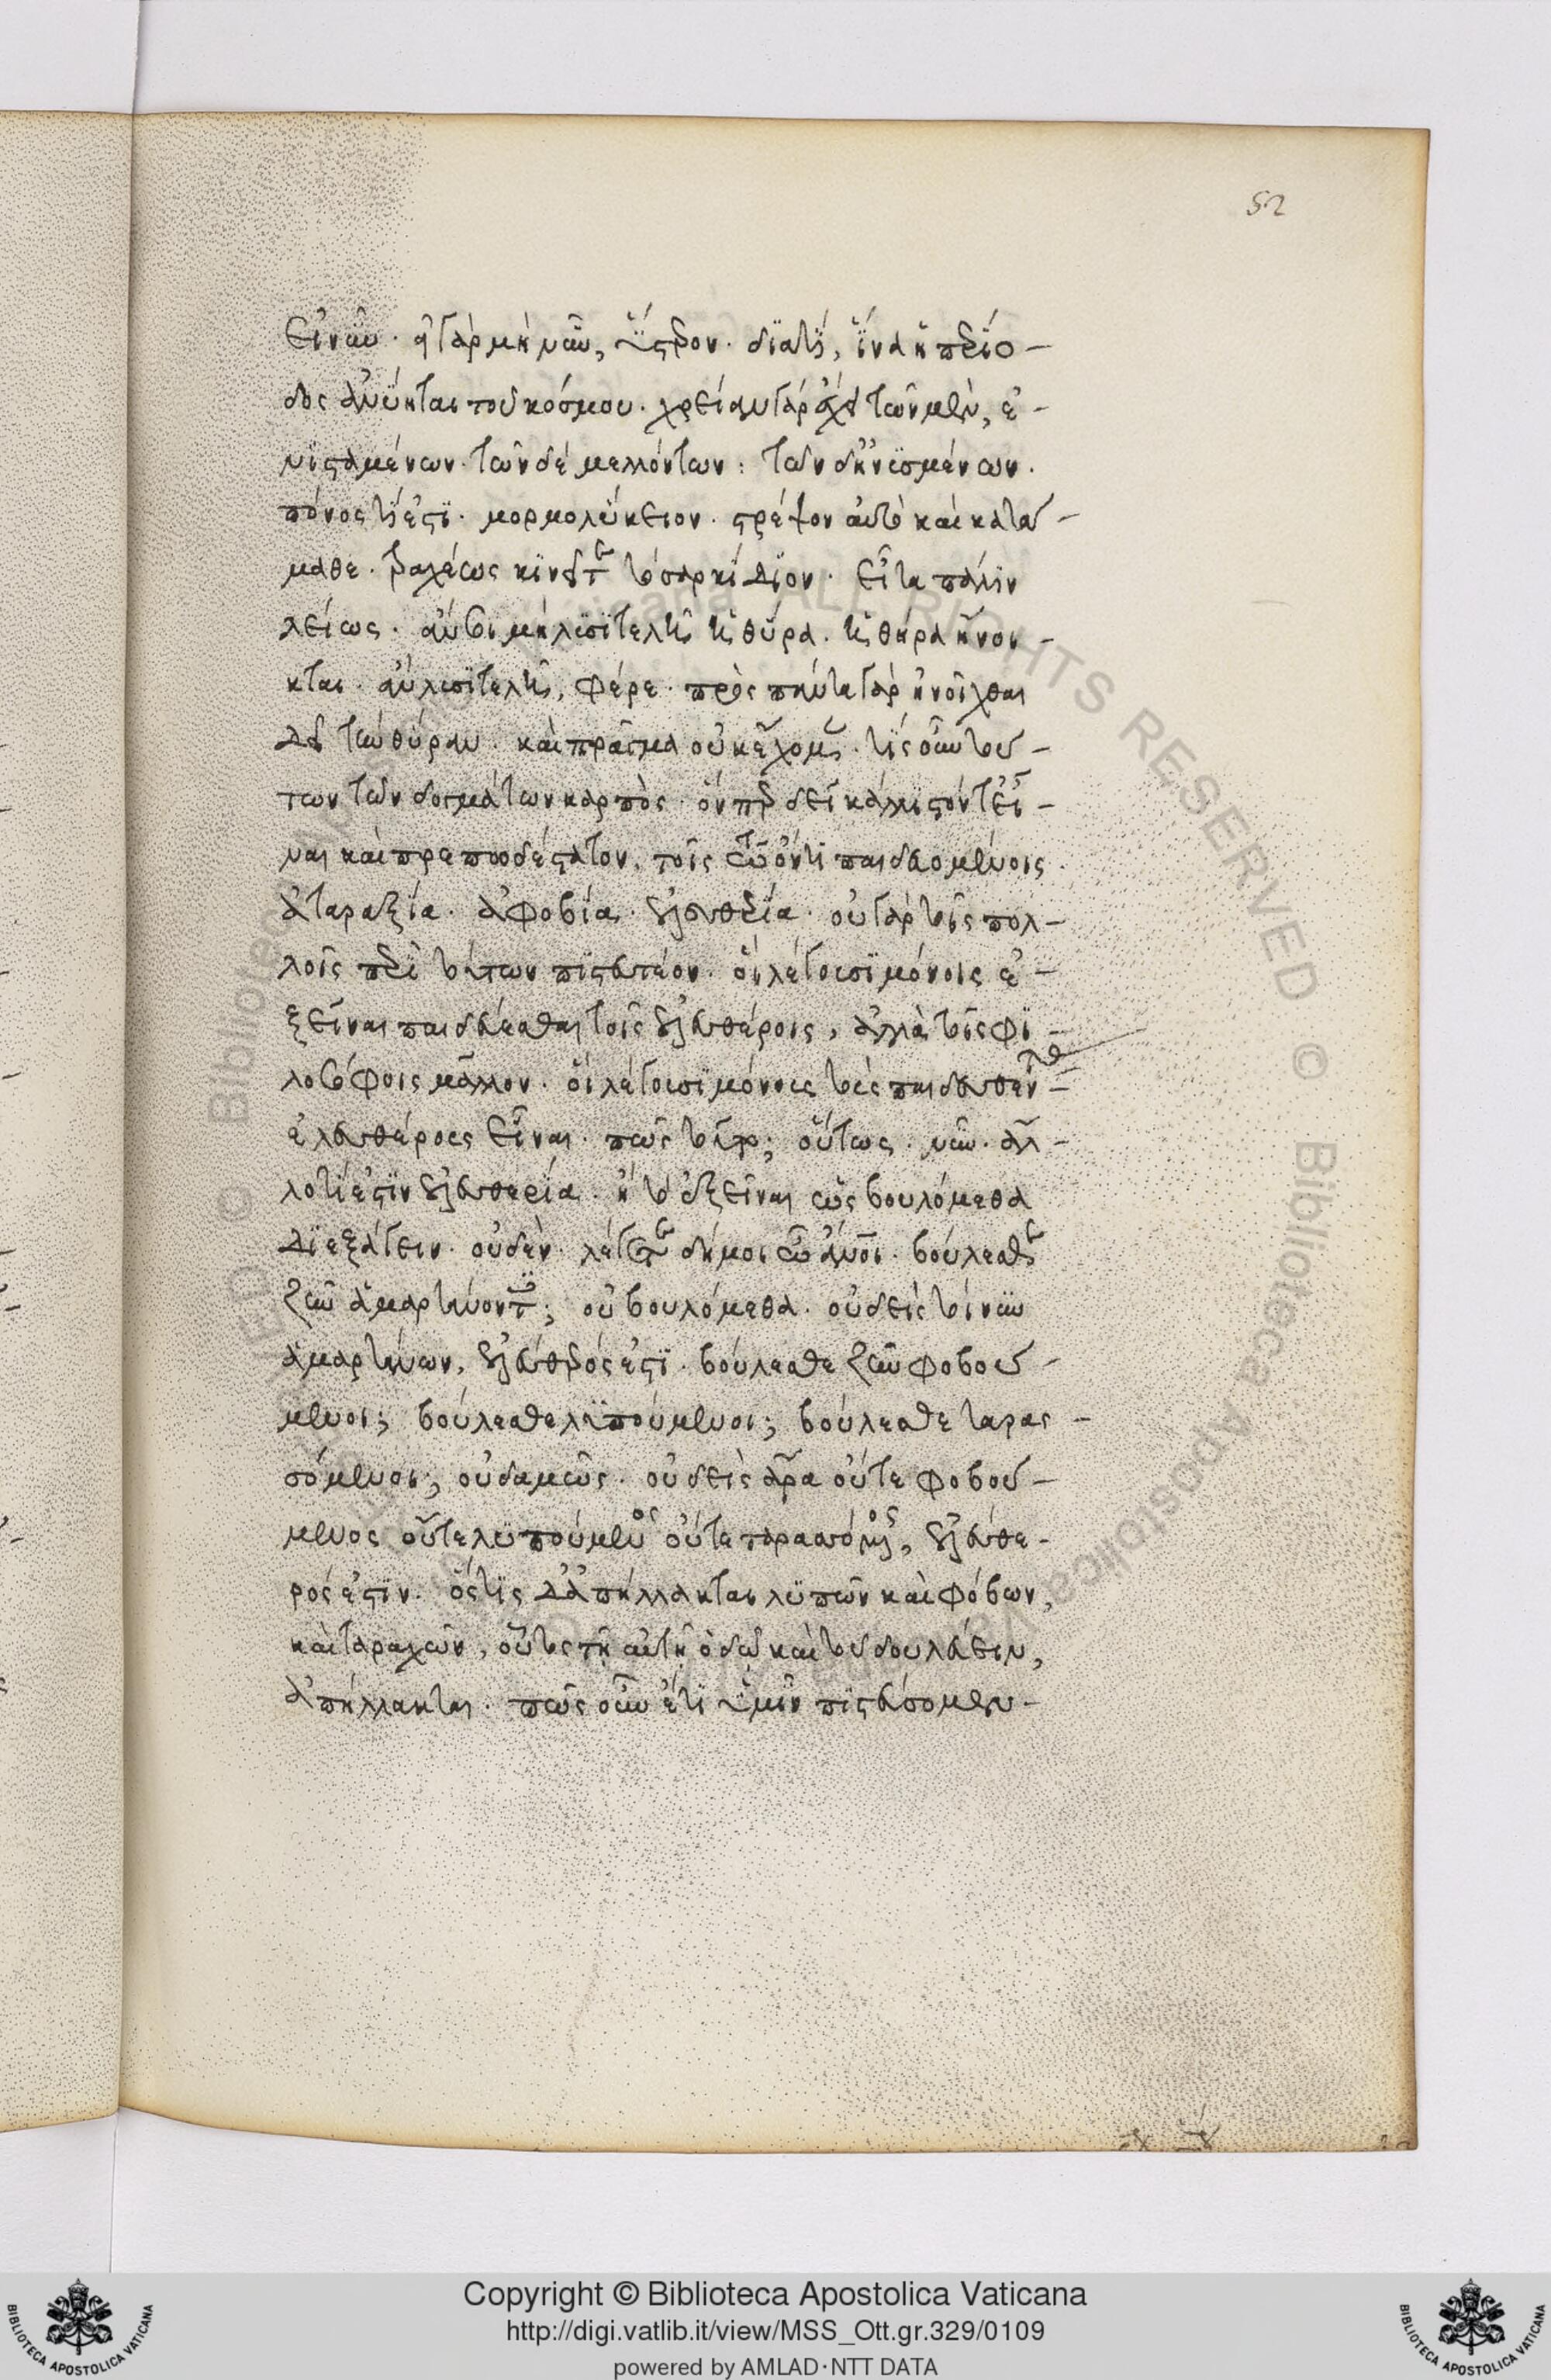 52
ἢ νῦν. εἰ γὰρ μὴ νῦν, ὕστερον. διατί, ἵνα ἡ περίο-
δος ἀνύηται τοῦ κόσμου. χρείαν γὰρ ἔχει τῶν μὲν, ἐ-
νισταμένων. τῶν δὲ μελλόντων: τῶν δ' ἠνυσμένων.
πόνος τί ἐστι. μορμολύκειον. στρέψον αὐτὸ καὶ κατά-
μαθε. τραχέως κινεῖται τὸ σαρκίδιον. εἶτα πάλιν
λείως. ἄν σοι μὴ λυσιτελῆ ἡ θύρα. ἡ θύρα ἤνοι-
κται. ἂν λυσιτελῆ, φέρε. πρὸς πάντα γὰρ ἠνοῖχθαι
δεῖ τὴν θύραν. καὶ πρᾶγμα οὐκ ἔχομεν. τίς οὖν τού-
των τῶν δογμάτων καρπὸς. ὅνπερ δεῖ κάλλιστόν τ' εἶ-
ναι καὶ πρεπωδέστατον, τοῖς τῶ ὄντι παιδευομένοις
ἀταραξία. ἀφοβία. ἐλευθερία. οὐ γὰρ τοῖς πολ-
λοῖς περὶ τούτων πιστευτέον. οἳ λέγουσι μόνοις ἐ-
ξεῖναι παιδεύεσθαι τοῖς ἐλευθέροις, ἀλλὰ τοῖς φι-
λοσόφοις μᾶλλον. οἳ λέγουσι μόνους τοὺς παιδευθέν-
τας
ἐλευθέρους εἶναι. πῶς τοῦτο; οὕτως. νῦν. ἄλ-
λο τί ἐστιν ἐλευθερία. ἢ τὸ ἐξεῖναι ὡς βουλόμεθα
διεξάγειν. οὐδὲν. λέγετε δή μοι ὦ ἄνθρωποι. βούλεσθε
ζῆν ἁμαρτάνοντες; οὐ βουλόμεθα. οὐδεὶς τοίνυν
ἁμαρτάνων, ἐλεύθερός ἐστι. βούλεσθε ζῆν φοβού-
μενοι; βούλεσθε λυπούμενοι; βούλεσθε ταρασ-
σόμενοι; οὐδαμῶς. οὐδεὶς ἄρα οὔτε φοβού-
μενος οὔτε λυπούμενος οὔτε ταρασσόμενος, ἐλεύθε-
ρός ἐστιν. ὅστις δ' ἀπήλλακται λυπῶν καὶ φόβων,
καὶ ταραχῶν, οὗτος τῆ αὐτῆ ὁδῶ καὶ τοῦ δουλεύειν,
ἀπήλλακται. πῶς οὖν ἔτι ὑμῖν πιστεύσομεν-
Copyright © Biblioteca Apostolica Vaticana
http://digi.vatlib.it/view/MSS_Ott.gr.329/0109
powered by AMLAD·NTT DATA